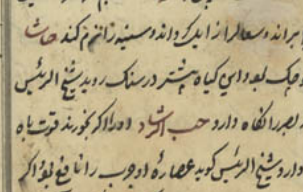 براند و سعال را زایل گرداند و سینه را نرم کند حاشا
کوچک بود و این گیاه بیشتر در سنک روید شیخ الرئیس
بصر را نگاه دارد حب الرشاد او را اگر بخورند قوت باه
دارد شیخ الرئیس گوید عصاره او جرب را نافع بود اگر